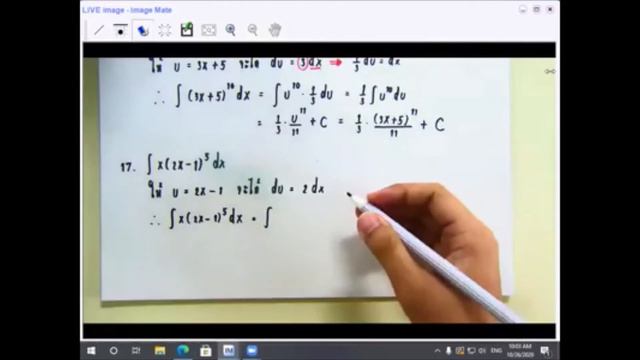 LIVE image - Image Mate
ให้ u = 3x+5 จะได้ du = 3 dx ⇒ 1/3 du = dx
∴ ∫(3x+5)^10 dx = ∫u^10 · 1/3 du = 1/3 ∫u^10 du
= 1/3 · u^11/11 + C = 1/3 · (3x+5)^11/11 + C
17. ∫x(2x-1)^5 dx
ให้ u = 2x-1 จะได้ du = 2 dx
∴ ∫x(2x-1)^5 dx = ∫
10:03 AM
ENG
10/26/2020